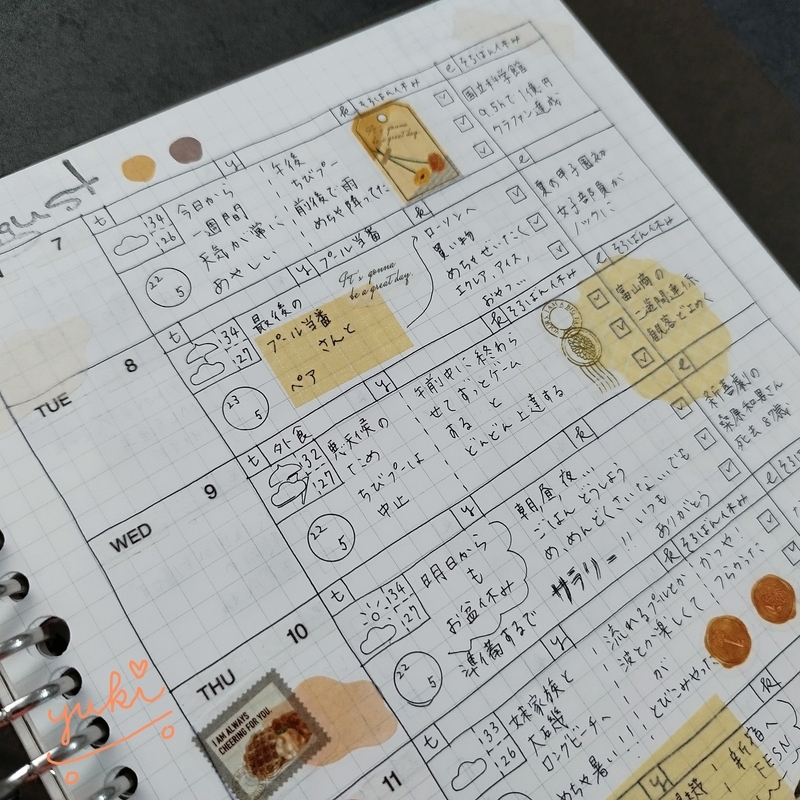 August
7
t
34
26
22
5
今日から
一週間
天気が常に
あやしい
y
午後
ちびプー
前後で雨
めちゃ降ってた
そろばん休み
It's gonna
be a great day
e
そろばん休み
国立科学館
9.5hで1億円
クラファン達成
TUE
8
t
34
27
23
5
最後の
プール当番
さんと
ペア
y
プール当番
It's gonna
be a great day
ローソンへ
買い物
めちゃぜいたく
エクレア、アイス、
おやつ…
e
夏の甲子園初
女子部員が
ノックに
WED
9
t
外食
32
27
22
5
悪天候の
ため
ちびプーは
中止
y
午前中に終わら
せてずっとゲーム
すると
どんどん上達する
そろばん休み
e
そろばん休み
富山商の
二遊間連係
観客どよめく
THU
10
t
34
27
22
5
明日から
も
お盆休み
準備するで
y
朝、昼、夜…
ごはんどうしよう
め、めんどくさいなぃでも
いつも
ありがとう
e
新喜劇の
桑原和男さん
死去 87歳
I AM ALWAYS
CHEERING FOR YOU.
11
t
33
26
妹家族と
大磯
ロングビーチへ
めちゃ暑い!!!
y
流れるプールとか
波とか楽しくて
が
とびこみやった
そろばん休み
かつや
y
新宿へ
FESN
yuki